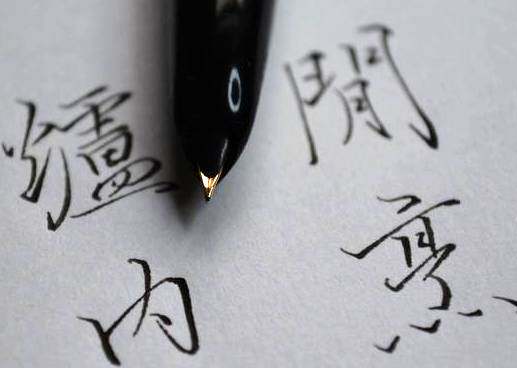 閒烹
爐内